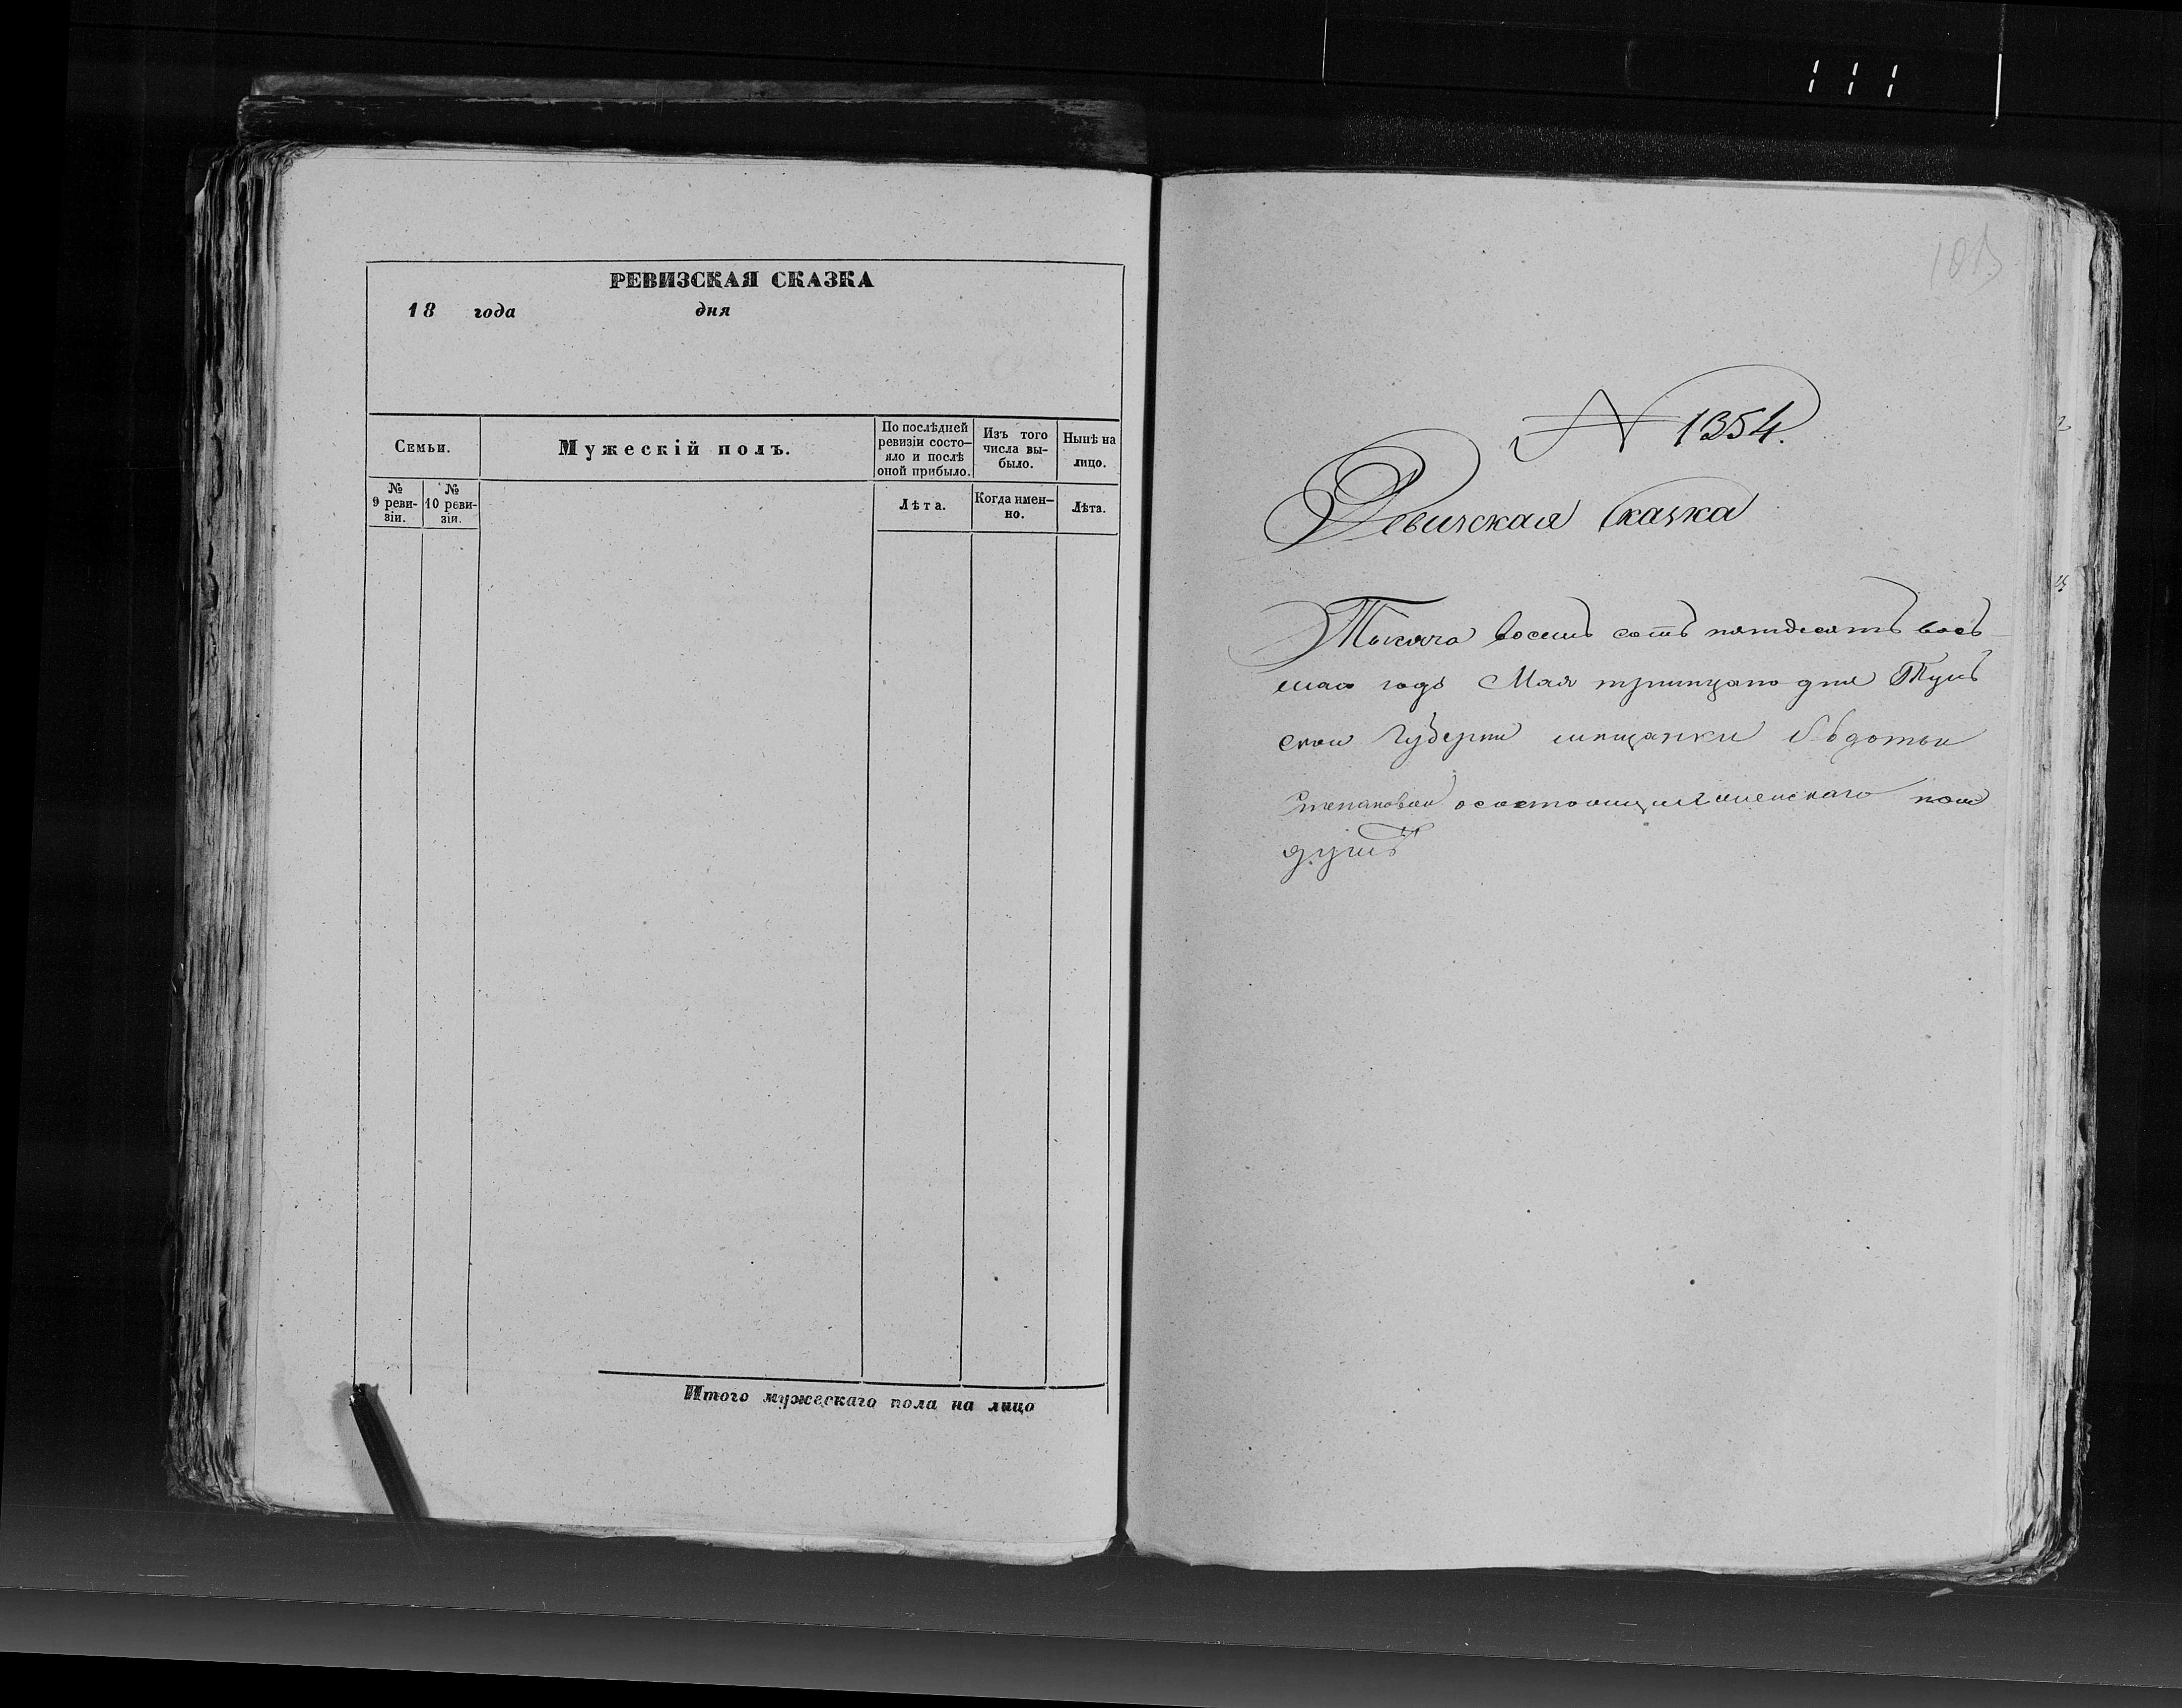 РЕВИЗСКАЯ СКАЗКА
18 года дня
Семьи.
Мужескій полъ.
По послѣдней ревизіи состо-
яло и послѣ оной прибыло.
Изъ того числа вы-
было.
Нынѣ на лицо.
№ 9 реви-
зіи.
№ 10 реви-
зіи.
Лѣта.
Когда имен-
но.
Лѣта.
Итого мужескаго пола на лицо
103
N 1354.
Ревизская Сказка
Тысяча восемь сотъ пятдесятъ вось
маго года Мая тритцато дня Туль
скои Губерни мещанки
Степановой о состоящих женскаго пола
душъ